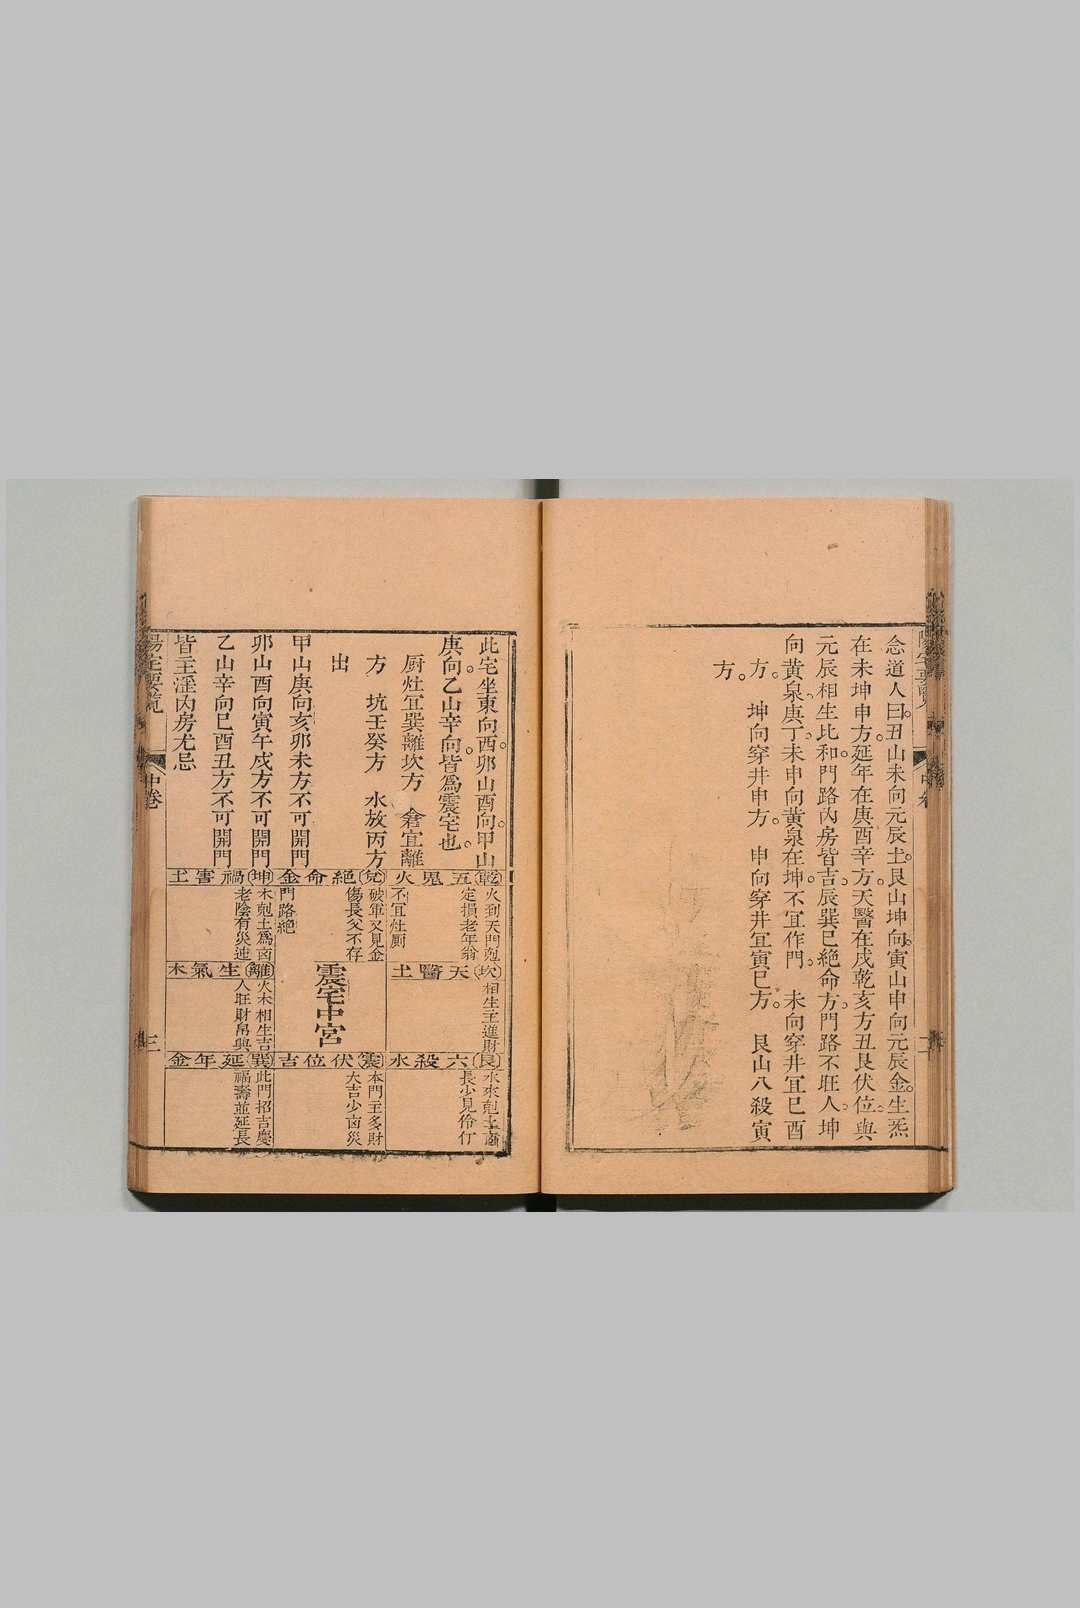 念道人曰丑山未向元辰土艮山坤向寅山申向元辰金生炁
在未坤申方延年在庚酉辛方天醫在戌乾亥方丑艮伏位與
元辰相生比和門路內房皆吉辰巽巳絕命方門路不旺人坤
向黃泉庚丁未申向黃泉在坤不宜作門 未向穿井宜巳酉
方 坤向穿井申方 申向穿井宜寅巳方 艮山八殺寅
方
此宅坐東向西卯山酉向甲山
庚向乙山辛向皆爲震宅也
厨灶宜巽離坎方 倉宜離
方 坑壬癸方 水放丙方
出
甲山庚向亥卯未方不可開門
卯山酉向寅午戌方不可開門
乙山辛向巳酉丑方不可開門
皆主淫內房尤忌
乾五鬼火
火到天門剋
定損老年翁
不宜灶厨
兌絕命金
破軍又見金
傷長父不存
門路絕
坤禍害土
木剋土爲凶
老陰有災逆
坎天醫土
相生主進財
震宅中宮
離生氣木
火木相生吉
人旺財帛興
艮六殺水
水來剋土凶
長少見伶仃
震伏位吉
本門主多財
大吉少凶災
巽延年金
此門招吉慶
福壽並延長
陽宅要覧
中卷
三